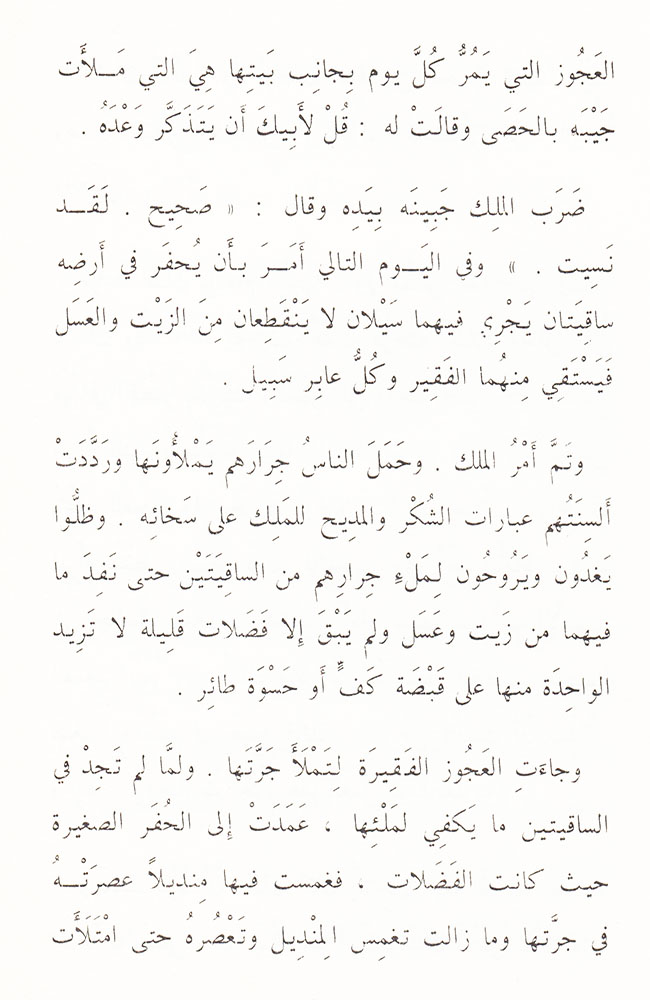 العَجُوز التي يَمُرُّ كُلَّ يوم بِجانِب بَيتِها هِيَ التي مَـلَأَت
جَيْبَه بالحَصَى وقالَتْ له : قُلْ لأَبِيكَ أَن يَتَذَكَّر وَعْدَهُ .
ضَرَب الملِك جَبِينَه بِيَدِه وقال : « صَحِيح . لَقَـد
نَسِيت . » وفي اليَـوم التالي أَمَـرَ بـأَن يُحفَر في أَرضِه
ساقِيَتان يَجْرِي فيهما سَيْلان لا يَنْقَطِعان مِنَ الزَيْت والعَسَل
فَيَسْتَقِي مِنهُما الفَقِير وكُلُّ عابِر سَبِيل .
وتَمَّ أَمْرُ الملك . وحَمَلَ الناسُ جِرَارَهم يَمْلأُونَها ورَدَّدَتْ
أَلسِنَتُهم عبارات الشُكْر والمدِيح للمَلِك على سَخائِه . وظلُّوا
يَغدُون ويَرُوحُون لِمَلْءِ جِرارِهم من الساقِيَتَيْن حتى نَفِدَ ما
فيهما من زَيت وعَسَل ولم يَبْقَ إلا فَضَلات قَلِيلة لا تَزِيد
الواحِدَة منها على قَبْضَة كَفٍّ أَو حَسْوَة طائِر .
وجاءَتِ العَجُوز الفَقِيرَة لِتَمْلَأَ جَرَّتَها . ولمَّا لم تَجِدْ في
الساقيتين ما يَكفِي لمَلْئِها ، عَمَدَتْ إلى الحُفَر الصغيرة
حيث كانت الفَضَلات ، فغمست فيها مِنديلاً عصرَتْـهُ
في جرَّتها وما زالت تغمِس المِنْدِيل وتَعْصُرهُ حتى امْتَلَأَت